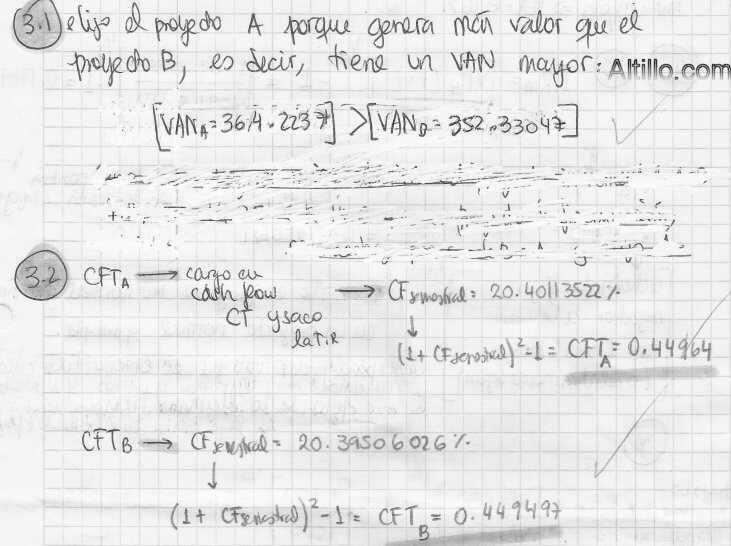 3.1) elijo el proyecto A porque genera más valor que el
proyecto B, es decir, tiene un VAN mayor: Altillo.com
[VAN_A = 364.2237] > [VAN_B = 352.33047]
3.2 CFT_A → cargo en
cash flow
CT y saco
la TIR
→ CF semestral = 20.40113522 %
↓
(1 + CF semestral)² - 1 = CFT_A = 0.44964
CFT_B → CF semestral = 20.39506026 %
↓
(1 + CF semestral)² - 1 = CFT_B = 0.449497